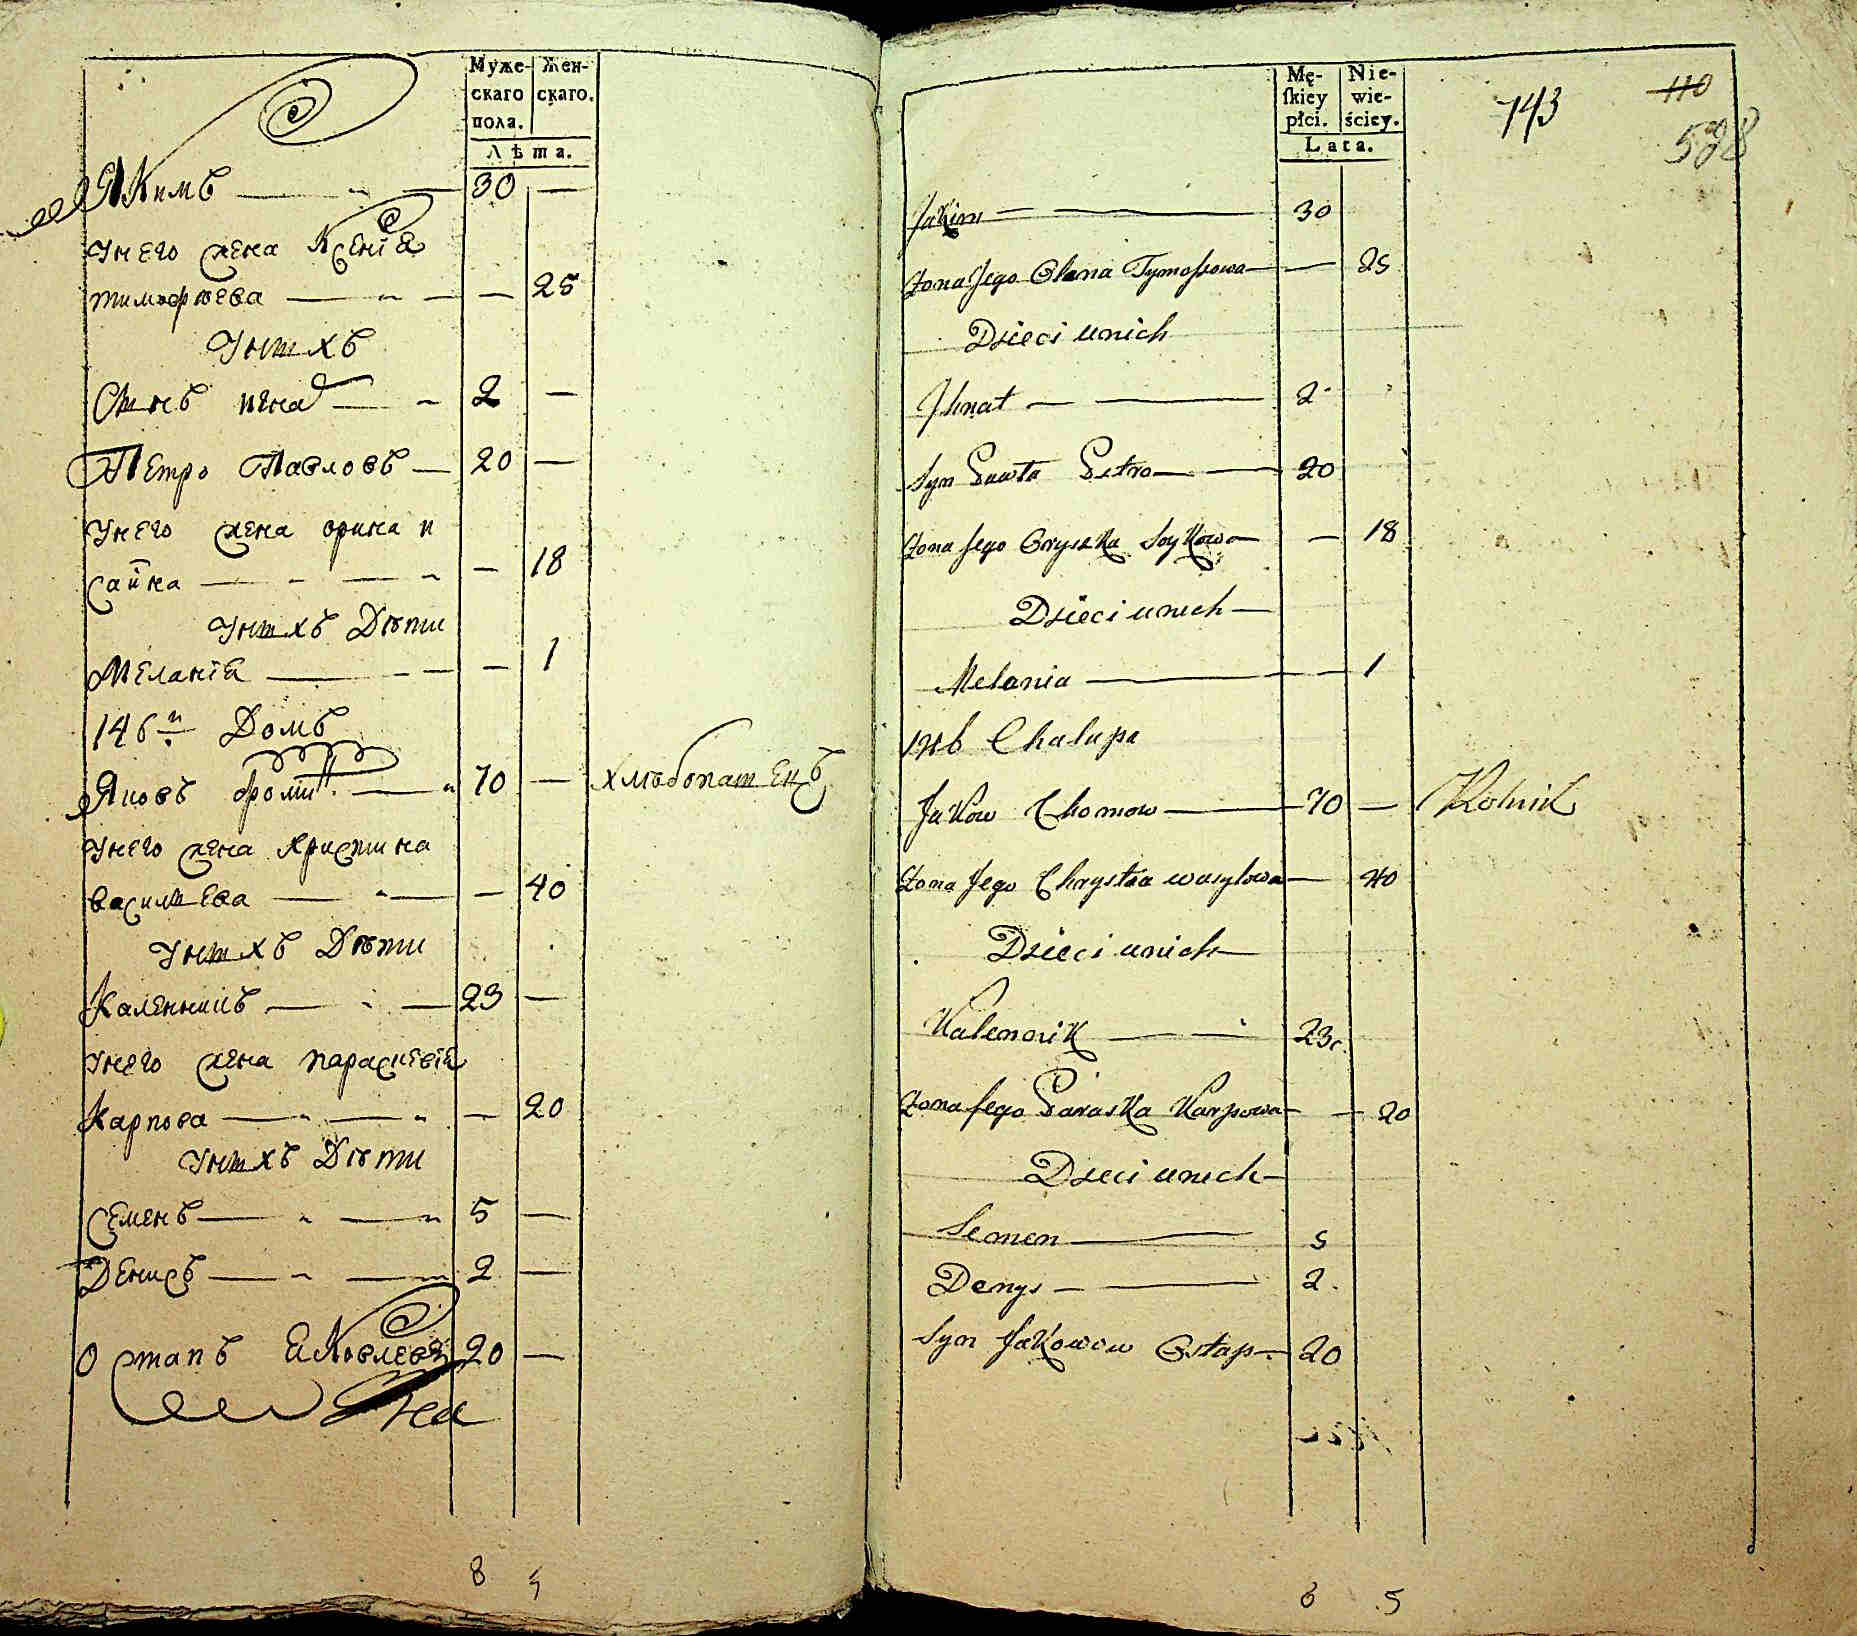 Муже- Жен-
скаго скаго.
пола.
Лѣта.
Якимъ — 30 —
Унего жена Ксенїя
тимофѣева — — 25
Унихъ
Сынъ игнат — 2 —
Петро Павловъ — 20 —
Унего жена орина и
сайка — — 18
Унихъ Дѣти
Меланїя — — 1
146й Домъ
Яковъ фоминъ — 70 — хлѣбопашецъ
Унего жена христина
василиева — — 40
Унихъ Дѣти
Каленникъ — 23 —
Унего жена параскевїя
Карпова — — 20
Унихъ Дѣти
Семенъ — 5 —
Денисъ — 2 —
Остапъ Яковлевъ 20 —
8 5
Mę- Nie-
ſkiey wie-
płci. ściey.
Lata.
143 110
528
Jakim — 30
Zona Jego Olena Tymoszowa — — 25
Dzieci unich
Ihnat — 2
Syn Pawła Petro — 20
Zona Jego Oryszka Soykowa — 18
Dzieci unich —
Melania — — 1
146 Chalupa
Jakow Chomow — 70 — Rolnik
Zona Jego Chrystia wasylowa — 40
Dzieci unich —
Kalennik — 23
Zona Jego Paraska Karpowa — — 20
Dzieci unich —
Semen — 5
Denys — 2.
Syn Jakowow Ostap — 20
8 5